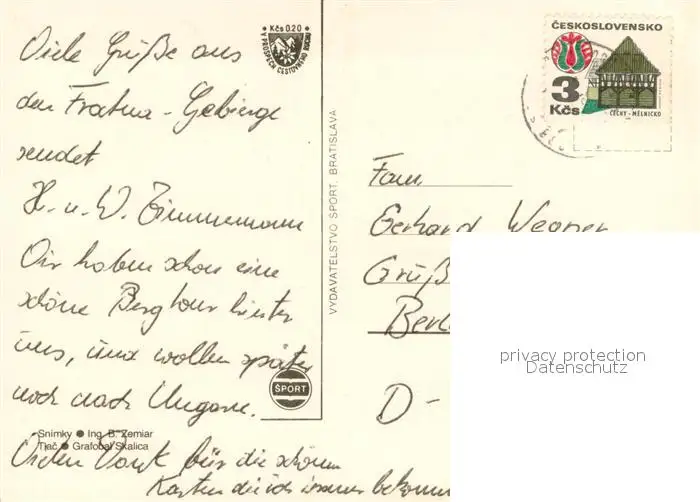 Viele Grüße aus
den Fratua-Gebirge
sendet
H. u. W. Zimmermann
Wir haben schon eine
schöne Bergtour hinter
uns, und wollen später
noch nach Ungarn.
Vielen Dank für die schönen
Karten die ich immer bekomm
Snímky ● Ing. B. Zemiar
Tlač ● Grafobal Skalica
ŠPORT
Kčs 0.20
V PROSPECH CESTOVNÉHO RUCHU
VYDAVATEĽSTVO ŠPORT, BRATISLAVA
ČESKOSLOVENSKO
3
Kčs
ČECHY - MĚLNICKO
Fam.
Gerhard Wegner
Grüß
Berl
D-
privacy protection
Datenschutz